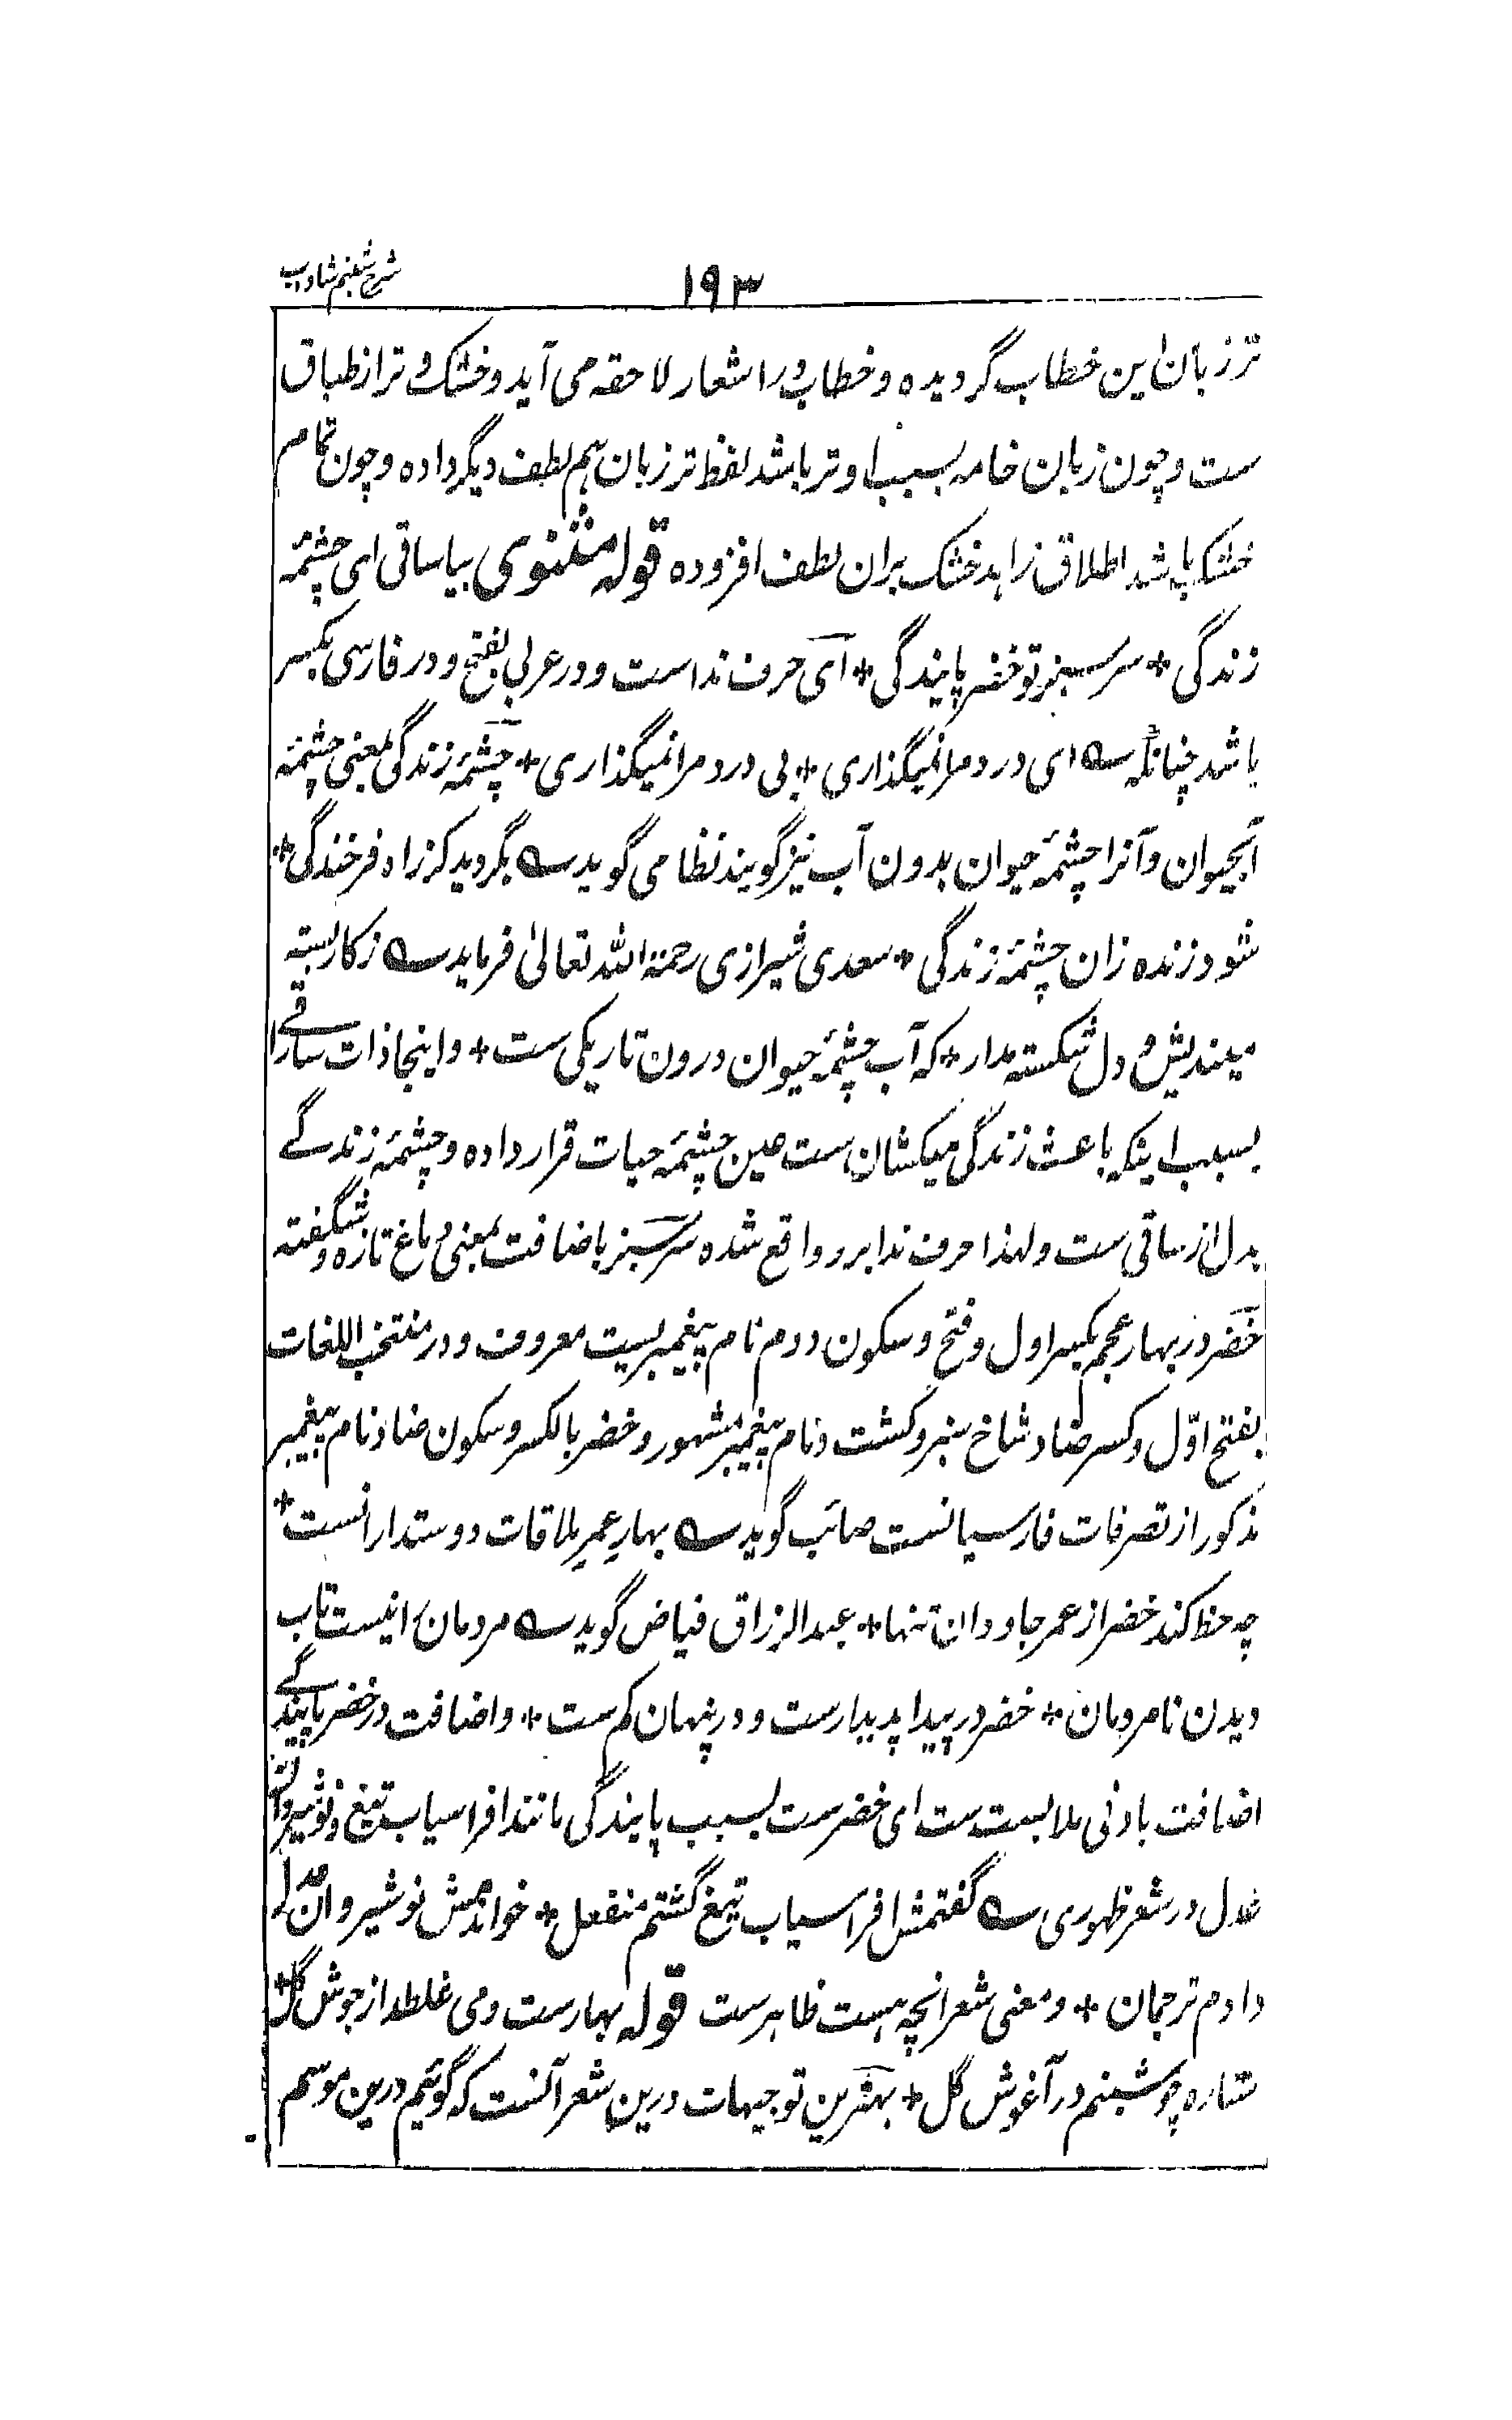 شرح شبنم شاداب
۱۹۳
تر زبان این خطاب گردیده و خطاب در اشعار لاحقه می آید و خشک و تر از طباق
ست و چون زبان خامه بسبب او تر باشد لفظ تر زبان هم لطف دیگر داده و چون تمام
خشک باشد اطلاق زاہد خشک بران لطف افزوده قوله مثنوی بیا ساقی ای چشمۂ
زندگی + سر سبز تو خضر پایندگی + ای حرف نداست و در عربی بفتح و در فارسی بکسر
باشد چنانکہ ؎ ای درد مرا نمیگذاری + بی درد مرا نمیگذاری + چشمۂ زندگی بمعنی چشمۂ
آبحیوان و آنرا چشمۂ حیوان بدون آب نیز گویند نظامی گوید ؎ بگردید کز راه فرخندگی +
شود زنده زان چشمۂ زندگی + سعدی شیرازی رحمۃ اللہ تعالیٰ فرماید ؎ ز کار بستہ
میندیش و دل شکستہ مدار + کہ آب چشمۂ حیوان درون تاریکی ست + و اینجا ذات ساقے را
بسبب اینکہ باعث زندگی میکشان ست عین چشمۂ حیات قرار داده و چشمۂ زندگے
بدل از ساقی ست و لہذا حرف ندا برو واقع شده سر سبز باضافت بمعنی باغ تازه و شگفتہ
خضر در بہار عجم بکسر اول و فتح و سکون دوم نام پیغمبریست معروف و در منتخب اللغات
بفتح اوّل و کسر ضاد شاخ سبز و کشت و نام پیغمبر مشہور و خضر بالکسر و سکون ضاد نام پیغمبر
مذکور از تصرفات فارسیانست صائب گوید ؎ بہارِ عمرِ ملاقات دوستدارانست +
چہ حظ کند خضر از عمر جاودان تنہا + عبد الرزاق فیاض گوید ؎ مردمان را نیست تاب
دیدن نامردمان + خضر در پیدا پدیدارست و در پنہان کم ست + و اضافت در خضر پایندگے
اضافت بادنی ملابست ست ای خضرست بسبب پایندگی مانند افراسیاب تیغ و نوشیروان
عدل در شعر ظہوری ؎ گفتمش افراسیاب تیغ گشتم منفعل + خواندمش نوشیروان عدل
دادم ترجمان + و معنی شعر انچہ ہست ظاہرست قولہ بہارست و می غلطد از جوش گل +
ستاره چو شبنم در آغوش گل + بہترین توجیہات درین شعر آنست کہ گوئیم درین موسم